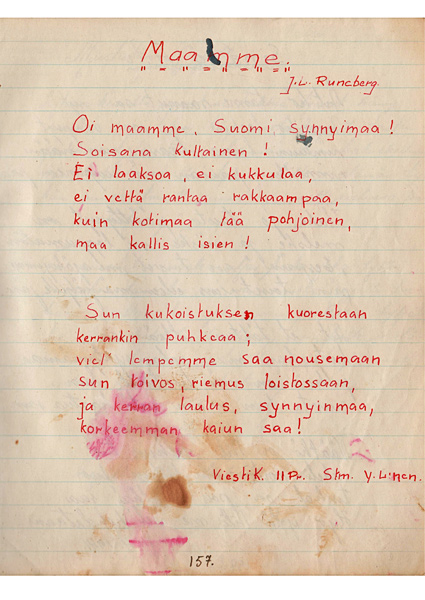 Maamme.
J.L. Runeberg.
Oi maamme, Suomi, synnyimaa!
Soisana kultainen!
Ei laaksoa, ei kukkulaa,
ei vettä rantaa rakkaampaa,
kuin kotimaa tää pohjoinen,
maa kallis isien!
Sun kukoistuksen kuorestaan
kerrankin puhkeaa;
viel' lempemme saa nousemaan
sun toivos, riemus loistossaan,
ja kerran laulus, synnyinmaa,
korkeemman kaiun saa!
Viestik. II Pr. Stm. Y. Linen.
157.